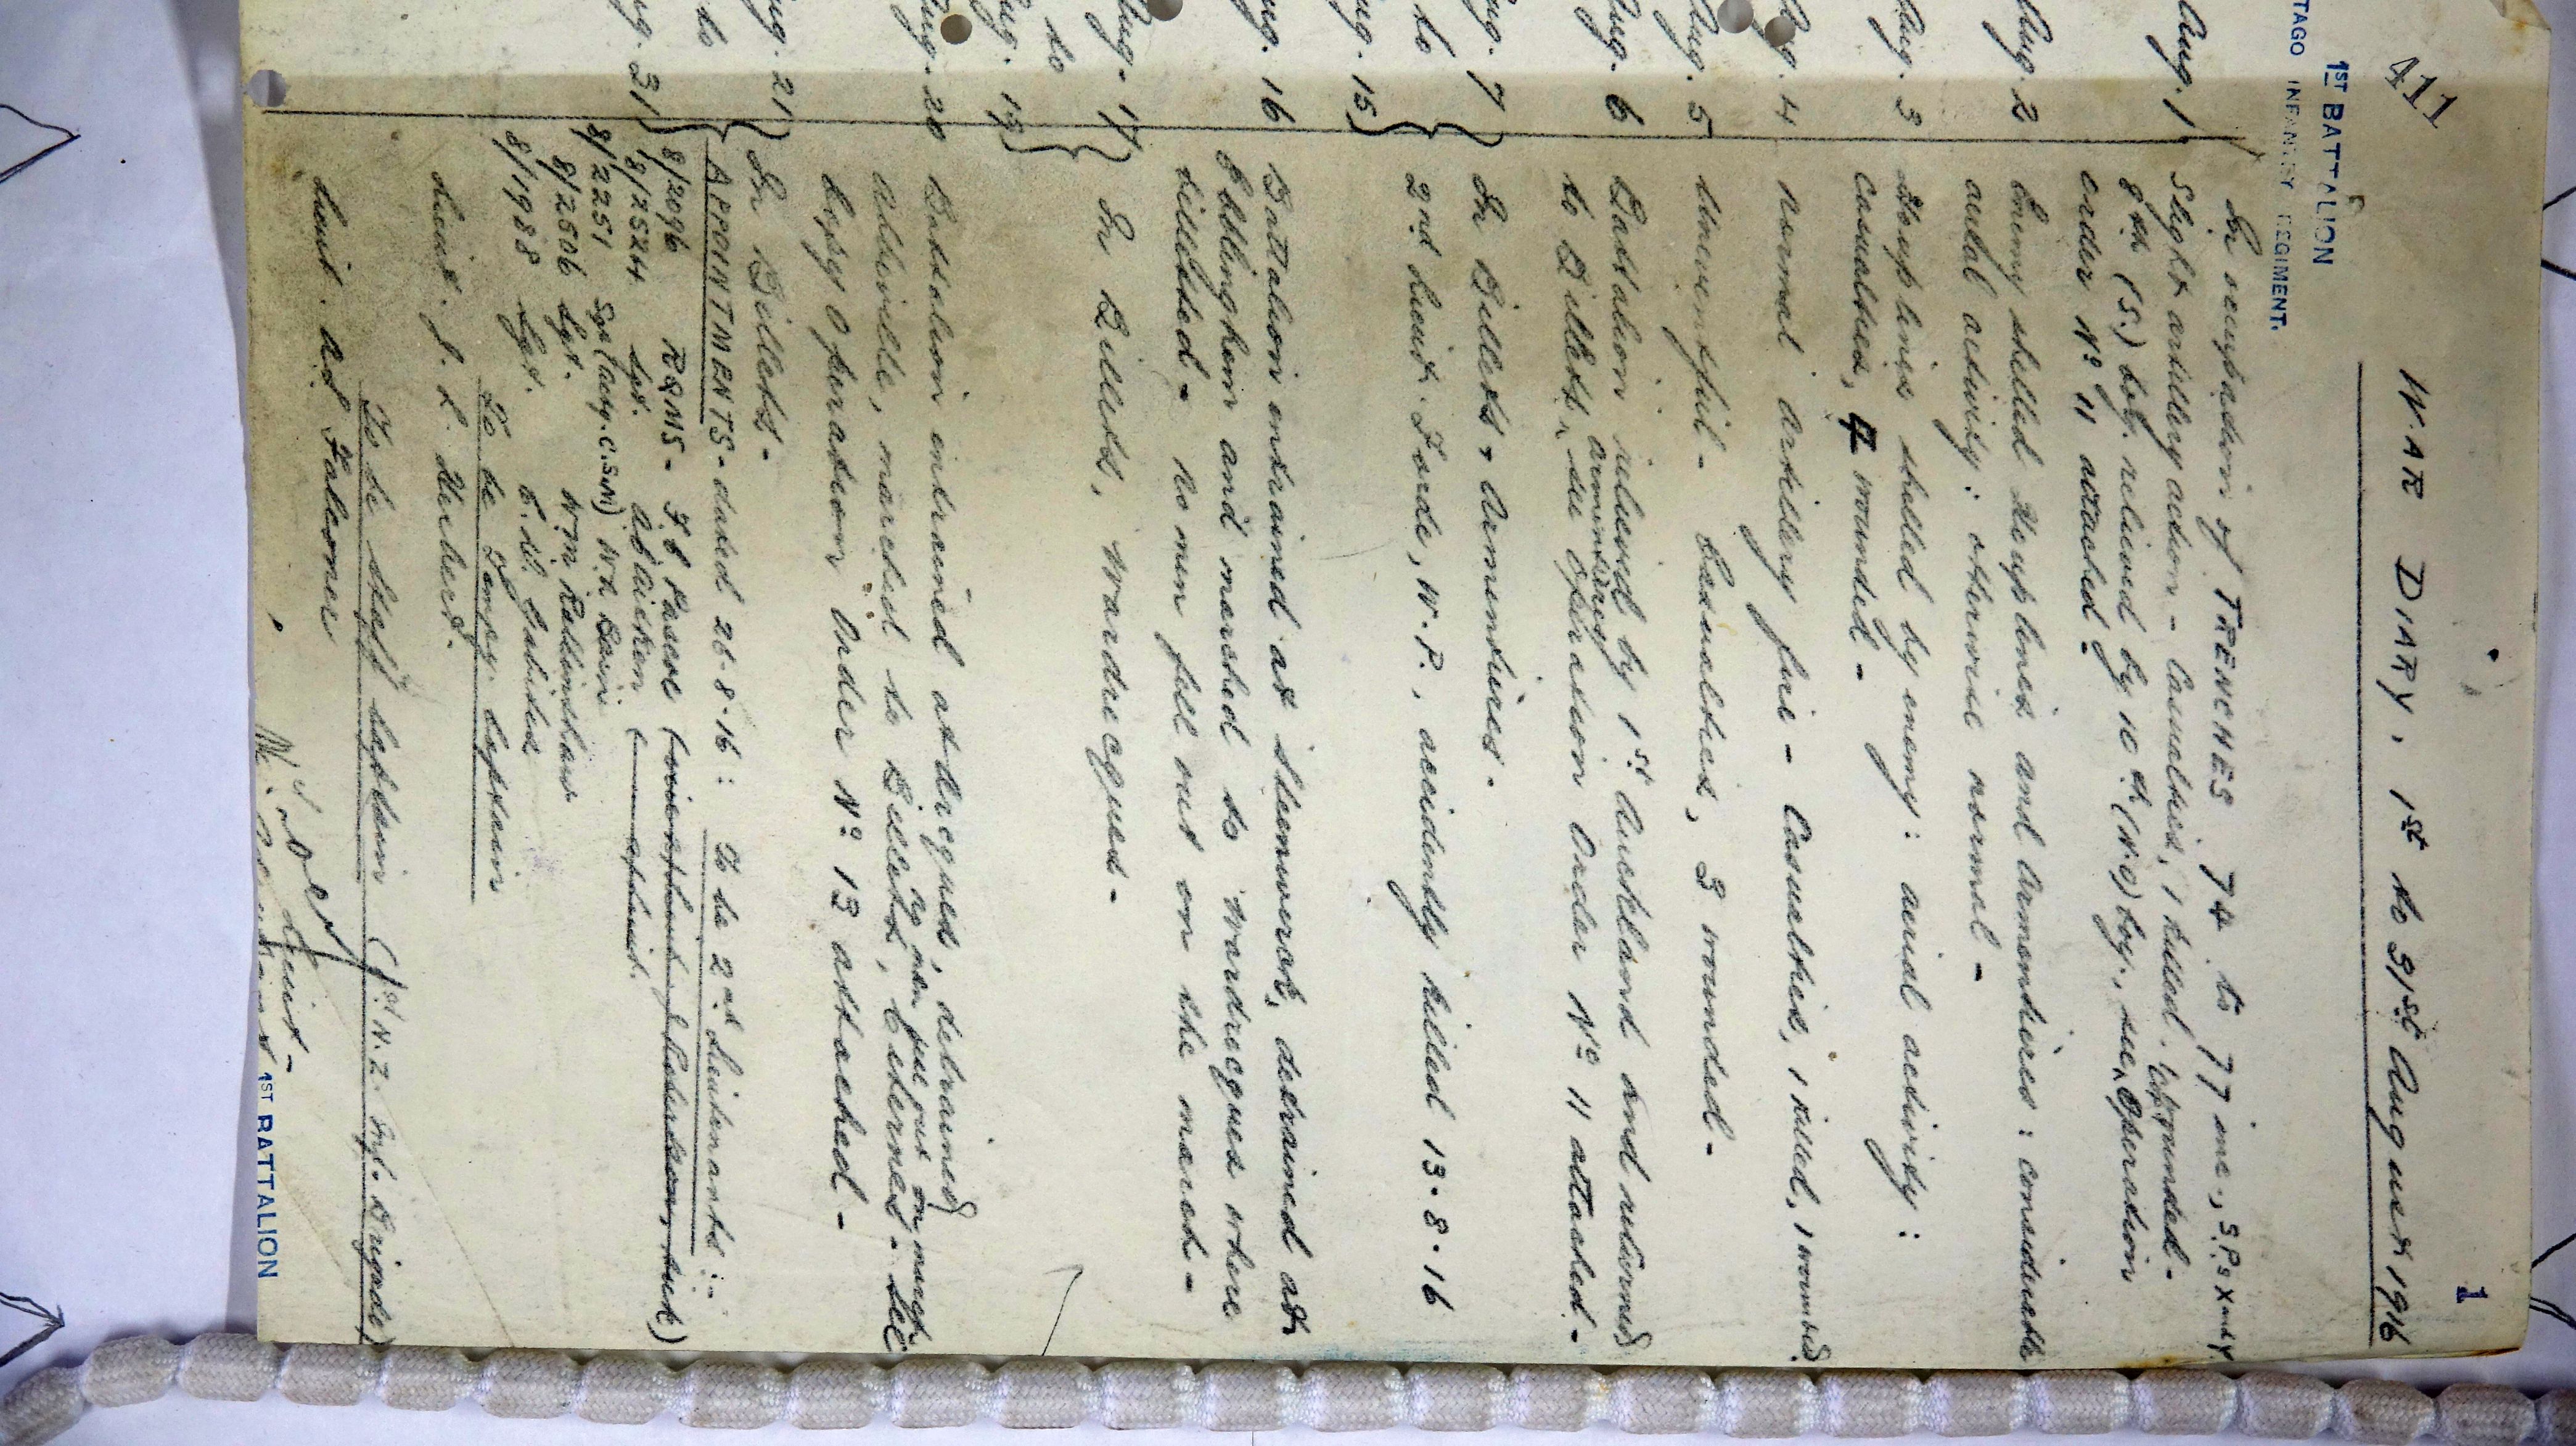 411
1
1ST BATTALION
TAGO INFANTRY REGIMENT.
WAR DIARY, 1st to 31st August 1916
Aug. 1 In occupation of TRENCHES 74 to 77 inc., S.P.s X and Y
Slight artillery action - Casualties, 1 killed. wounded -
8th (S.) Coy. relieved by 10th (N.O) Coy., see Operation
order No 11 attached -
Aug. 2 Enemy shelled Houplines and Armentieres: considerable
aerial activity: otherwise normal -
Aug. 3 Houplines shelled by enemy: aerial activity:
Casualties, wounded -
Aug. 4 normal artillery fire - Casualties, 1 killed, 1 wounded.
Aug. 5 Uneventful - Casualties, 3 wounded -
Aug. 6 Battalion relieved by 1st Auckland and returned
to Billets, Armentieres see Operation Order No 11 attached -
Aug. 7 In Billets, Armentieres.
to 2nd Lieut. Forde, W.P., accidently killed 13.8.16
Aug. 15
Aug. 16 Battalion entrained at Steenwerck, detrained at
Ebblinghem and marched to Wardrecques where
billetted - No men fell out on the march -
Aug. 17 In Billets, Wardrecques -
to
Aug. 19
Aug. 20 Battalion entrained at Arcques, detrained
Abbeville, marched to Billets, Citernes - See
no men fell out on march
Copy Operation Order No 13 attached -
Aug. 21 In Billets -
to APPOINTMENTS - dated 26.8.16: To be 2nd Lieutenants:-
Aug. 31 8/2096 RQMS -
8/2524 Sgt.
8/2251 Sgt (actg. C.S.M)
8/2506 Sgt.
8/1988 Sgt.
To be Tempy. Captain
Lieut. J. L. Herbert.
To be Staff Captain (1st N.Z. Inf. Brigade)
Lieut. Falconer
Lieut -
1ST BATTALION